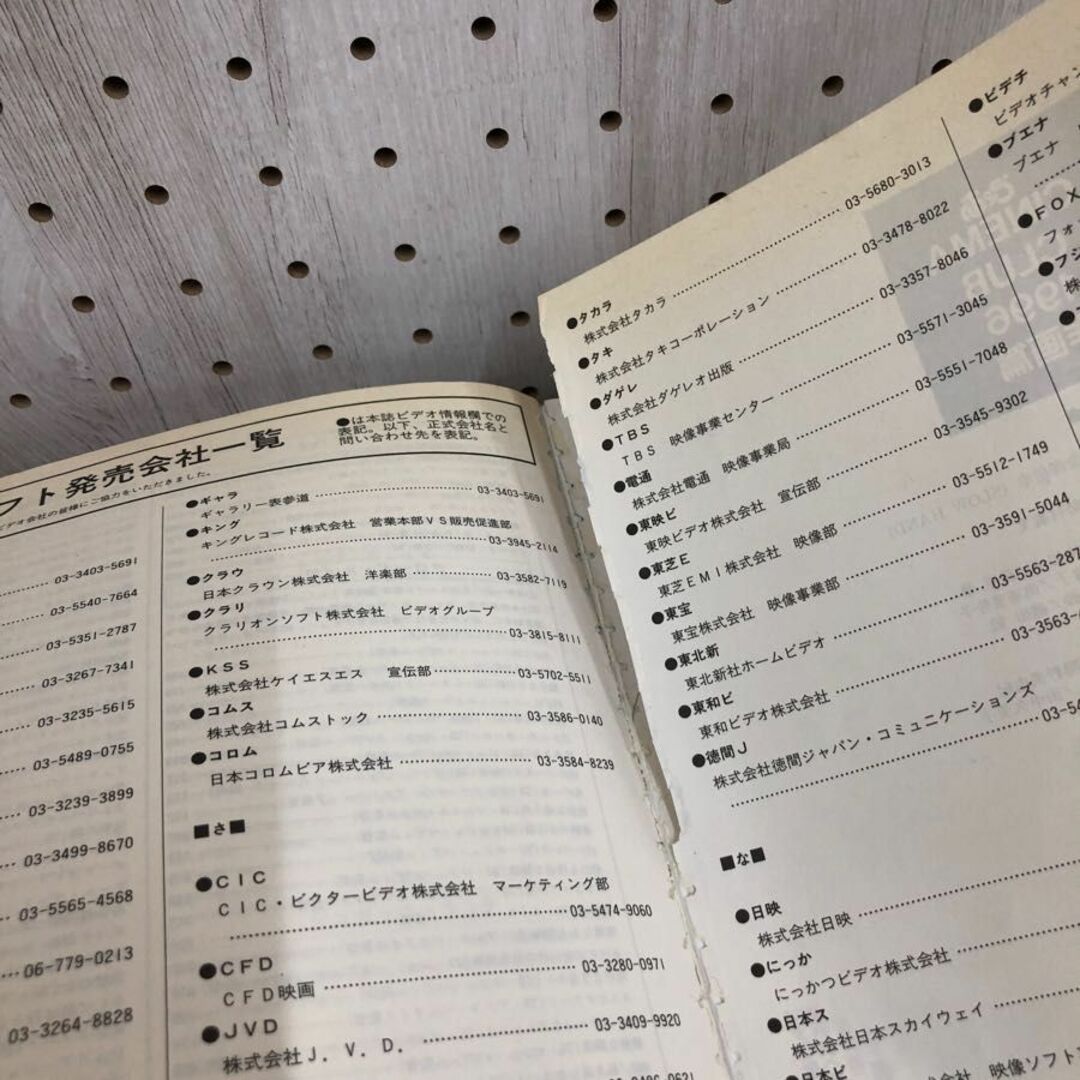 フト発売会社一覧
●は本誌ビデオ情報欄での
表記。以下、正式会社名と
問い合わせ先を表記。
デオ会社の皆様にご協力をいただきました。
03-3403-5691
03-5540-7664
03-5351-2787
03-3267-7341
03-3235-5615
03-5489-0755
03-3239-3899
03-3499-8670
03-5565-4568
06-779-0213
03-3264-8828
●ギャラ
ギャラリー表参道 03-3403-5691
●キング
キングレコード株式会社 営業本部ＶＳ販売促進部
03-3945-2114
●クラウ
日本クラウン株式会社 洋楽部 03-3582-7119
●クラリ
クラリオンソフト株式会社 ビデオグループ
03-3815-8111
●ＫＳＳ
株式会社ケイエスエス 宣伝部 03-5702-5511
●コムス
株式会社コムストック 03-3586-0140
●コロム
日本コロムビア株式会社 03-3584-8239
■さ■
●ＣＩＣ
ＣＩＣ・ビクタービデオ株式会社 マーケティング部
03-5474-9060
●ＣＦＤ
ＣＦＤ映画 03-3280-0971
●ＪＶＤ
株式会社Ｊ．Ｖ．Ｄ． 03-3409-9920
●タカラ
株式会社タカラ 03-5680-3013
●タキ
株式会社タキコーポレーション 03-3478-8022
●ダゲレ
株式会社ダゲレオ出版 03-3357-8046
●ＴＢＳ
ＴＢＳ 映像事業センター 03-5571-3045
●電通
株式会社電通 映像事業局 03-5551-7048
●東映ビ
東映ビデオ株式会社 宣伝部 03-3545-9302
●東芝Ｅ
東芝ＥＭＩ株式会社 映像部 03-5512-1749
●東宝
東宝株式会社 映像事業部 03-3591-5044
●東北新
東北新社ホームビデオ 03-5563-287
●東和ビ
東和ビデオ株式会社 03-3563-
●徳間Ｊ
株式会社徳間ジャパン・コミュニケーションズ
03-54
■な■
●日映
株式会社日映
●にっか
にっかつビデオ株式会社
●日本ス
株式会社日本スカイウェイ
●日本ビ
会社 映像ソフト
●ビデチ
ビデオチャン
●ブエナ
ブエナ
●ＦＯＸ
フォ
●フジ
株